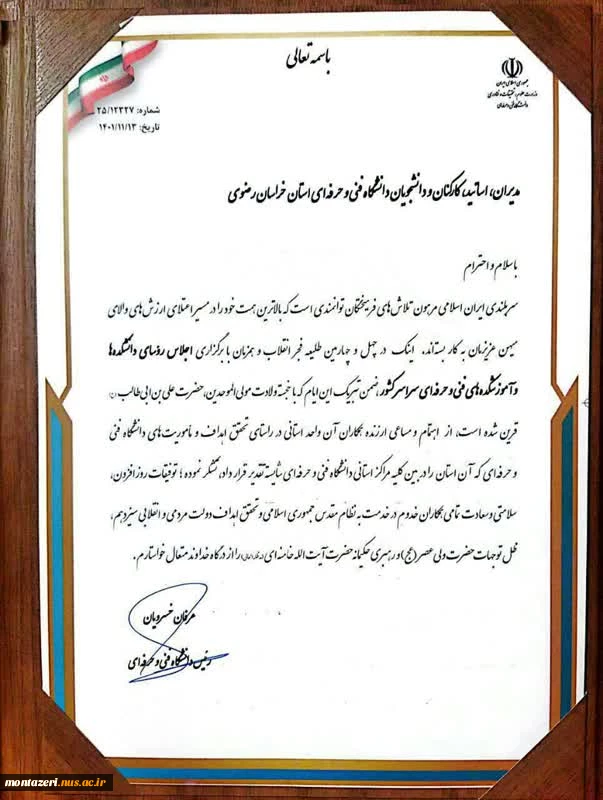 باسمه تعالی
جمهوری اسلامی ایران
وزارت علوم، تحقیقات و فناوری
دانشگاه فنی و حرفه‌ای
شماره: ۲۵/۱۲۳۲۷
تاریخ: ۱۴۰۱/۱۱/۱۳
مدیران، اساتید، کارکنان و دانشجویان دانشگاه فنی و حرفه ای استان خراسان رضوی
با سلام و احترام
سربلندی ایران اسلامی مرهون تلاش های فرهیختگان توانمندی است که بالاترین همت خود را در مسیر اعتلای ارزش های والای
میهن عزیزمان به کار بسته‌اند. اینک در چهل و چهارمین طلیعه فجر انقلاب و همزمان با برگزاری اجلاس رؤسای دانشکده‌ها
و آموزشکده‌های فنی و حرفه‌ای سراسر کشور، ضمن تبریک این ایام که با خجسته ولادت مولی الموحدین، حضرت علی بن ابی طالب (ع)
قرین شده است، از اهتمام و مساعی ارزنده همکاران آن واحد استانی در راستای تحقق اهداف و مأموریت های دانشگاه فنی
و حرفه‌ای که آن استان را در بین کلیه مراکز استانی دانشگاه فنی و حرفه‌ای شایسته تقدیر قرار داد، تشکر نموده؛ توفیقات روزافزون،
سلامتی و سعادت تمامی همکاران خدوم در خدمت به نظام مقدس جمهوری اسلامی و تحقق اهداف دولت مردمی و انقلابی سیزدهم،
ظل توجهات حضرت ولی عصر (عج) و رهبری حکیمانه حضرت آیت الله خامنه‌ای (مدظله العالی) را از درگاه خداوند متعال خواستارم.
عرفان خسرویان
رئیس دانشگاه فنی و حرفه‌ای
montazeri.nus.ac.ir